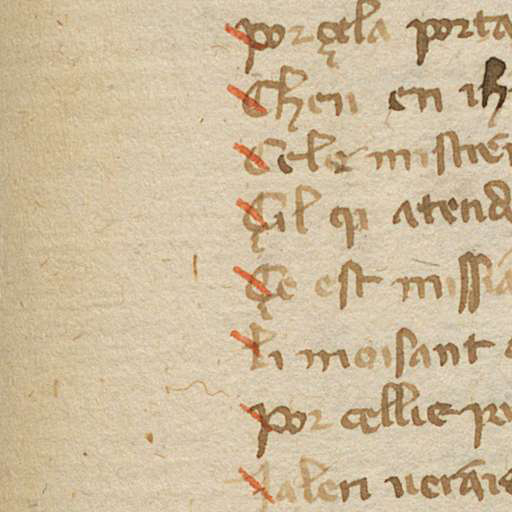 por çela porta
Chen en ih
Celor mistier
Çil qi atend
Çe est missia
li moisant
por cellie po
Jalen uerais